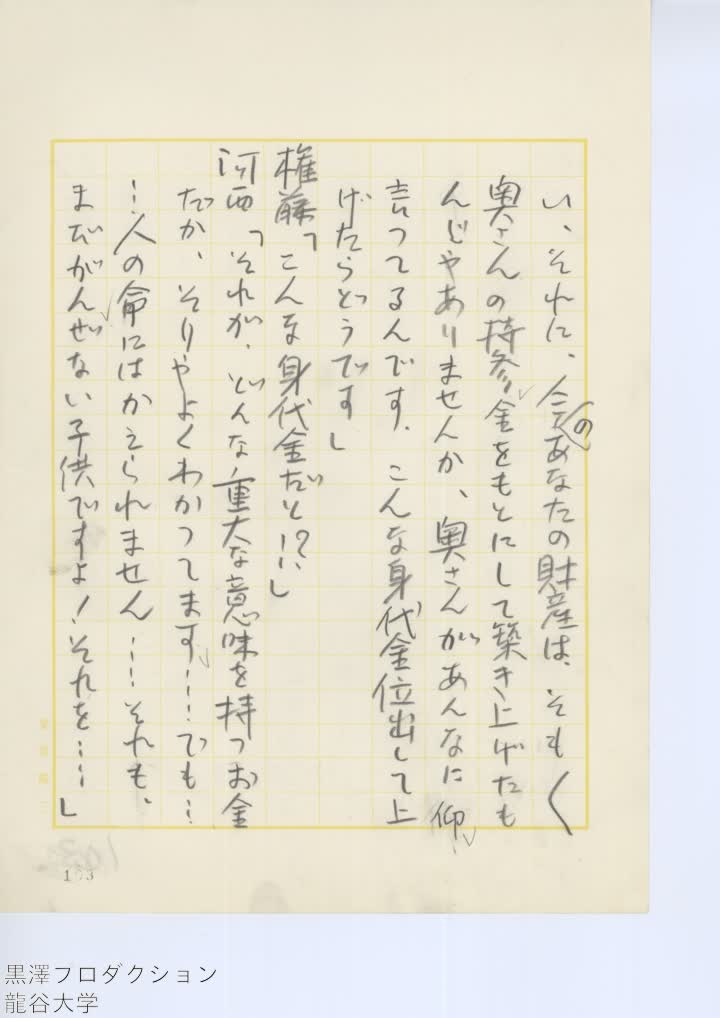 い、それに、今のあなたの財産は、そも〱
奥さんの持参金をもとにして築き上げたも
んじやありませんか、奥さんがあんなに仰
言つてるんです、こんな身代金位出して上
げたらどうです」
権藤「こんな身代金だと!?」
河西「それが、どんな重大な意味を持つお金
だか、そりやよくわかつてます……でも…
…人の命にはかえられません……それも、
まだがんぜない子供ですよ!それを……」
163
黒澤プロダクション
龍谷大学